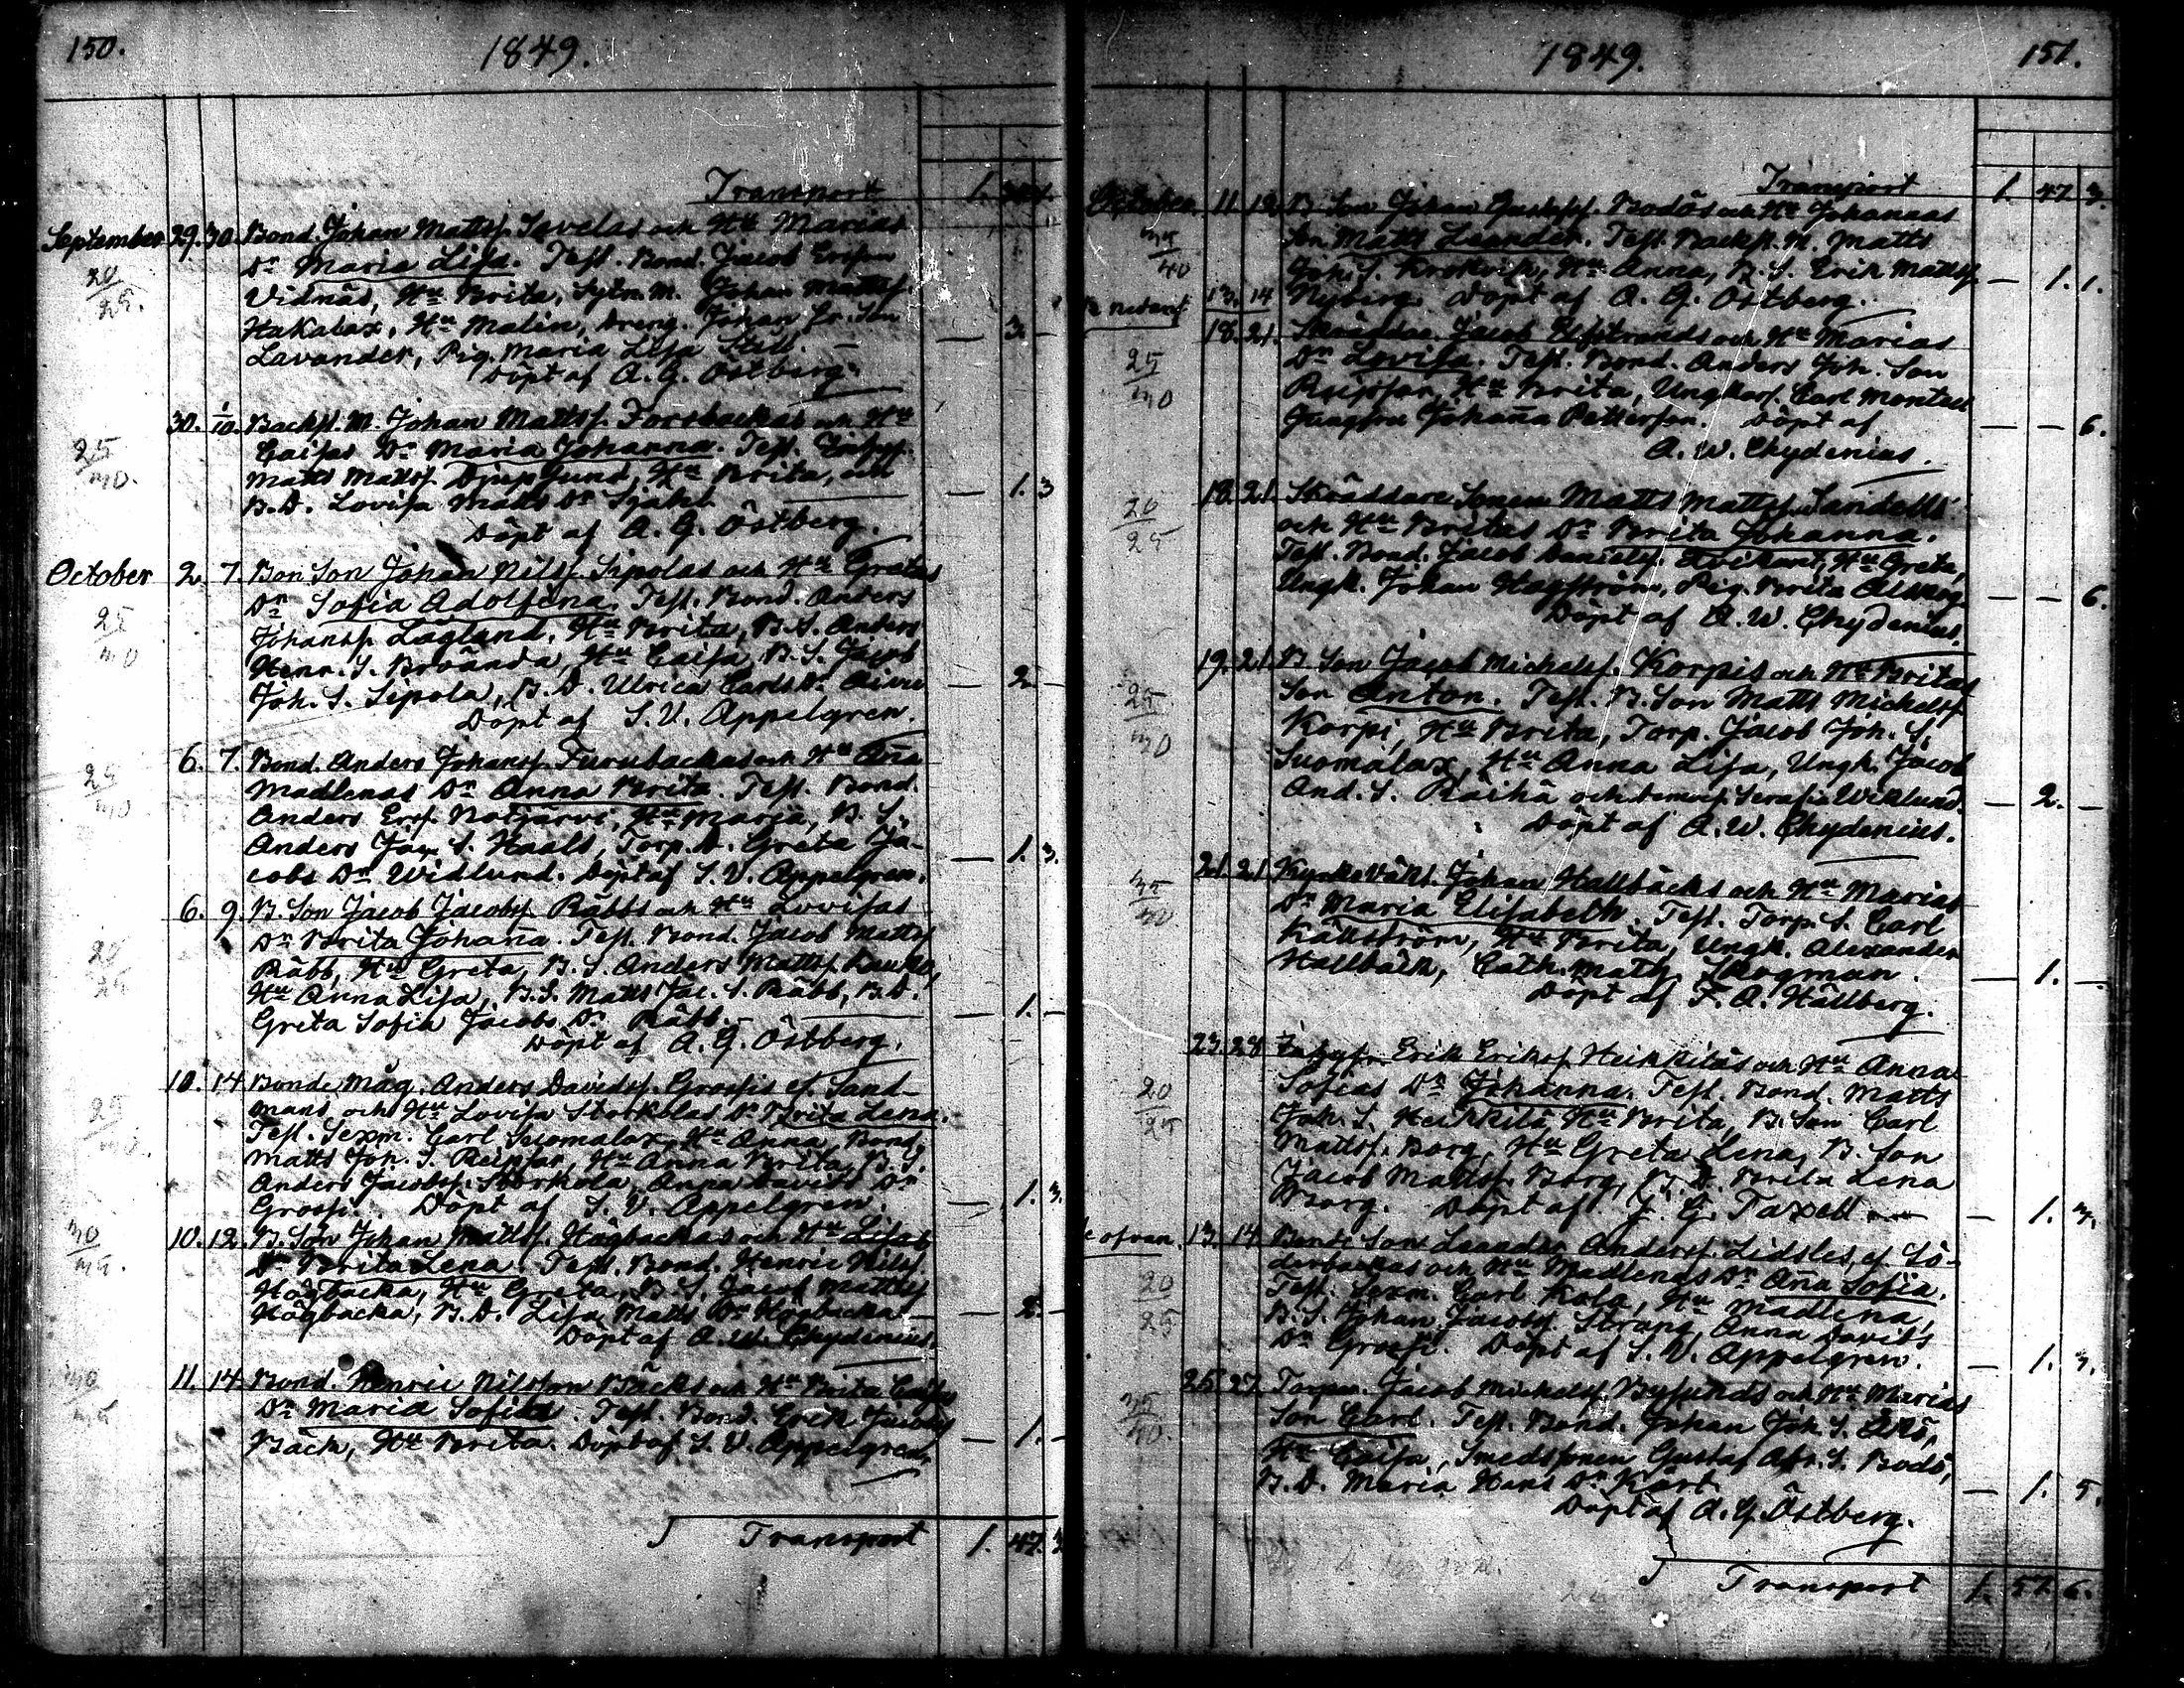 150.
1849.
Transport 1.
September 29. 30. Bond. Johan Mattsf. Savelas och Hu Marias
20/25. Dr Maria Lisa. Test. Bond. Jacob Ersson
Vidnäs, Hu Brita, Sytn. M. Johan Mattsf.
Hakalax, Hu Malin, Dreng. Johan Son
Lavander, Pig. Maria Lisa — 3. —
Döpt af A. G. Östberg.
30. 1/10. Backst. M. Johan Mattsf. Forsbackas och Hu
25/30. Caisas Dr Maria Johanna. Test.
Matts Mattsf. Djupsund, Hu Brita, och
B. D. Lovisa Matts Dr — 1. 3
Döpt af A. G. Östberg.
October 2. 7. Bon Son Johan Nilsf. Sipolas och Hu Gretas
25/30 Dr Sofia Adolfina. Test. Bond. Anders
Johansf. Lågland, Hu Brita, B. S. Anders
Henr. S. Brvånda, Hu Caisa, B. S. Jacob
Joh. S. Sipola, B. D. Ulrica Carls Dr — 2. —
Döpt af S. V. Appelgren.
6. 7. Bond. Anders Johansf. Furubackas och Hu Aña
25/30 Madlenas Dr Anna Brita. Test. Bond.
Anders Ersf. Notjärvi, Hu Maria, B. S.
Anders Jac. S. Haals, Torp. D. Greta Ja- — 1. 3.
cobs Dr Widlund. Döpt af S. V. Appelgren.
6. 9. B. Son Jacob Jacobsf. Räbbs och Hu Lovisas
20/25 Dr Brita Johaña. Test. Bond. Jacob Mattsf
Räbb, Hu Greta, B. S. Anders Mattsf. Kauko,
Hu Anna Lisa, B. S. Matts Jac. S. Räbb, B. D. — 1. —
Greta Sofia Jacobs Dr Räbb.
Döpt af A. G. Östberg.
10. 14. Bonde Måg. Anders Davidsf. Grossis el. Sand-
25/30. mans och Hu Lovisa Storkolas Dr Brita Lena.
Test. Sexm. Carl Suomalax, Hu Anna, Bond.
Matts Joh. S. Reipsar, Hu Anna Brita, B. S.
Anders Jacobsf. Storkola, Anna Davids Dr — 1. 3.
Grossi. Döpt af S. V. Appelgren.
10. 12. B. Son Johan Mattsf. Högbackas och Hu Lisas
30/35. Dr Brita Lena. Test. Bond. Henric Nilsf.
Högbacka, Hu Greta, B. S. Jacob Mattsf
Högbacka, B. D. Lisa Matts Dr Högbacka — 2. —
Döpt af A. W. Chydenius.
11. 14. Bond. Henric Nilsson Bäcks och Hu Brita Caisas
30/35 Dr Maria Sofia. Test. Bond. Erik Jacobsf
Bäck, Hu Brita. Döpt af S. V. Appelgren. — 1. —
Transport 1. 47. 3
1849.
151.
Transport 1. 47. 3.
October. 11. 12. B. Son Johan Gustafsf. Bodös och Hu Johannas
35/40 Son Matts Leander. Test. Backst. M. Matts
Joh. S. Krokvik, Hu Anna, B. S. Erik Mattsf. — 1. 1.
13. 14 Nyberg. Döpt af A. G. Östberg.
18. 21. Skräddar. Jacob Elfstrands och Hu Marias
25/30 Dr Lovisa. Test. Bond. Anders Joh. Son
Reipsar, Hu Brita, Ungkarl. Carl Montell
Jungfru Johaña Petterson. Döpt af — — 6.
A. W. Chydenius.
18. 21. Skräddare Sonen Matts Mattsf. Sandells
20/25 och Hu Britas Dr Brita Johanna.
Test. Bond. Jacob Danielsf. Hu Greta,
Ungk. Johan Hagström, Pig. Brita — — 6.
Döpt af A. W. Chydenius.
19. 21. B Son Jacob Michelsf. Korpis och Hu Britas
25/30 Son Anton. Test. B. Son Matts Michelsf.
Korpi, Hu Brita, Torp. Jacob Joh. S.
Suomalax, Hu Anna Lisa, Ungk. Jacob
And. S. Räihä och Serafia Wiklund. — 2. —
Döpt af A. W. Chydenius.
21. 21. Kyrkovakt. Johan Hallbäcks och Hu Marias
35/40 Dr Maria Elisabeth. Test. Torp. S. Carl
Källström, Hu Brita, Ungk. Alexander
Hallbäck, Cath. Math. Skogman. — 1. —
Döpt af F. A. Hällberg.
23. 28. Erik Eriksf. Heikkiläs och Hu Anna
20/25 Sofias Dr Johanna. Test. Bond. Matts
Joh. S. Heikkilä, Hu Brita, B. Son Carl
Mattsf. Borg, Hu Greta Lena, B. Son
Jacob Mattsf. Borg, B. D. Brita Lena
Borg. Döpt af J. G. Taxell — 1. 3.
ofvan. 13. 14. Bonde Son Leander Andersf. Lidsles, el. Sö-
20/25 derbackas och Hu Madlenas Dr Aña Sofia.
Test. Sexm. Carl Kola, Hu Madlena,
B. S. Johan Jacobsf. Strang, Anna Davids
Dr Grossi. Döpt af S. V. Appelgren. — 1. 3.
25. 27. Torpar. Jacob Michelsf. Bysunds och Hu Marias
35/40. Son Carl. Test. Bond. Johan Joh. S.
Hu Caisa, Smedssonen Gustaf S. Bodö,
B. D. Maria Hans Dr — 1. 5.
Döpt af A. G. Östberg.
Transport 1. 57. 6.